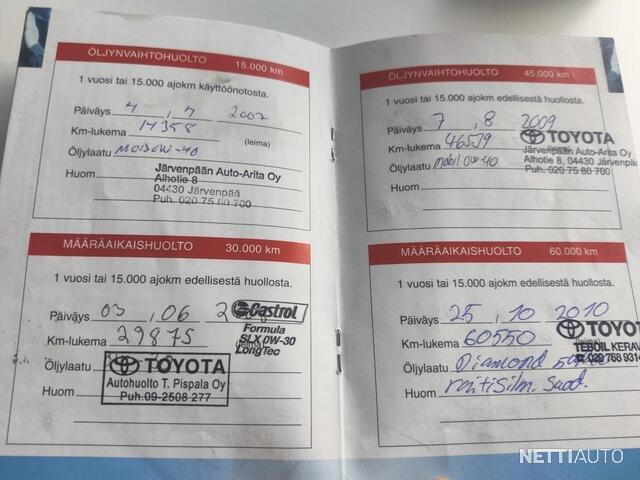 ÖLJYNVAIHTOHUOLTO 15.000 km
1 vuosi tai 15.000 ajokm käyttöönotosta.
Päiväys 4 . 7 2007
Km-lukema 14358 (leima)
Öljylaatu
Järvenpään Auto-Arita Oy
Huom Alhotie 8
04430 Järvenpää
Puh. 020 75 80 700
MÄÄRÄAIKAISHUOLTO 30.000 km
1 vuosi tai 15.000 ajokm edellisestä huollosta.
Päiväys 03 . 06 2
Castrol
Formula
SLX 0W-30
LongTec
Km-lukema 29875 (leima)
Öljylaatu
TOYOTA
Autohuolto T. Pispala Oy
Puh.09-2508 277
Huom
ÖLJYNVAIHTOHUOLTO 45.000 km
1 vuosi tai 15.000 ajokm edellisestä huollosta.
Päiväys 7 . 8 2009
TOYOTA
Km-lukema 46519
Järvenpään Auto-Arita Oy
Öljylaatu mobil 0W-40
Alhotie 8, 04430 JÄRVENPÄÄ
Puh. 020 75 80 700
Huom
MÄÄRÄAIKAISHUOLTO 60.000 km
1 vuosi tai 15.000 ajokm edellisestä huollosta.
Päiväys 25 . 10 2010
TOYO
Km-lukema 60550 (leima)
TEBOIL KERAV
020 768 931
Öljylaatu Diamond
Huom raitisilm. suod.
NETTIAUTO